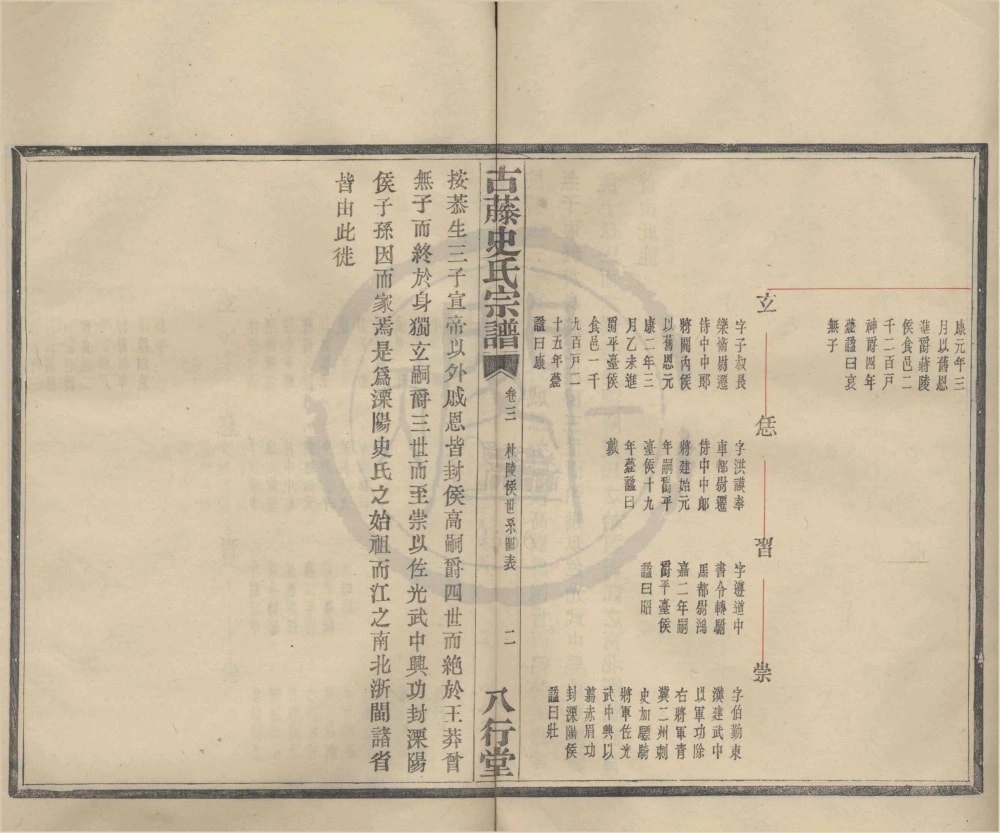 康元年三
月以舊恩
進爵蔣陵
侯食邑二
千二百戸
神爵四年
薨諡曰哀
無子
玄
字子叔長
樂衛尉遷
侍中中郎
將關內侯
以舊恩元
康二年三
月乙未進
爵平臺侯
食邑一千
九百戸二
十五年薨
諡曰康
恁
字洪謨奉
車都尉遷
侍中中郎
將建始元
年嗣舊平
臺侯十九
年薨諡曰
戴
習
字遵道中
書令轉駙
馬都尉鴻
嘉二年嗣
爵平臺侯
諡曰昭
崇
字伯勤東
漢建武中
以軍功除
右將軍青
冀二州刺
史加驃騎
將軍佐光
武中興以
翦赤眉功
封溧陽侯
諡曰壯
古藤史氏宗譜
卷三 杜陵侯世系圖表 二
八行堂
按恭生三子宣帝以外戚恩皆封侯高嗣爵四世而絶於王莽曾
無子而終於身獨玄嗣爵三世而至崇以佐光武中興功封溧陽
侯子孫因而家焉是爲溧陽史氏之始祖而江之南北浙閩諸省
皆由此徙